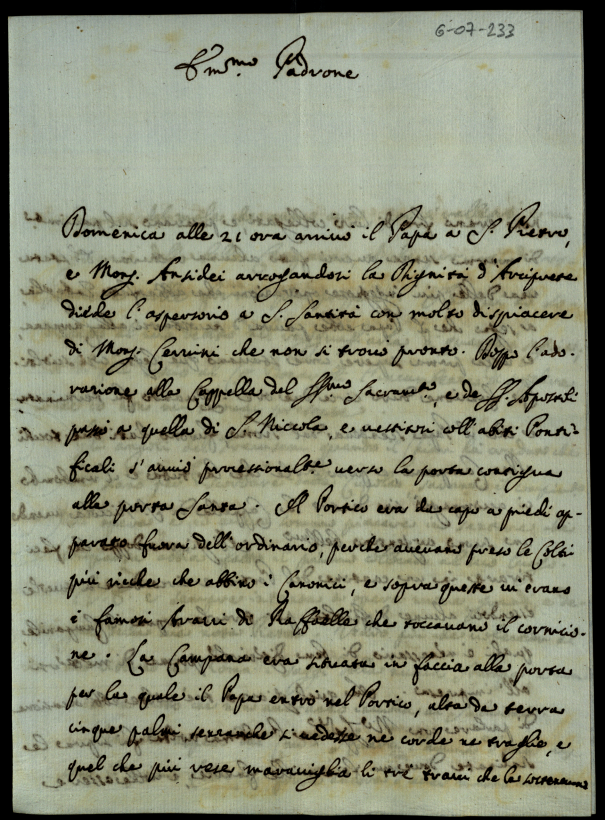 6-07-233
Em.mo Padrone
Domenica alle 21 ora arrivò il Papa a S. Pietro,
e Mons. Ansidei arrogandosi la Dignità d'Arciprete
diede l'aspersorio a S. Santità con molto dispiacere
di Mons. Cervini che non si trovò pronto. Doppo l'ado-
razione alla Cappella del SS.mo Sacram.to, e de SS. Apostoli
passò a quella di S. Niccola, e vestitosi coll'abiti Ponti-
ficali s'avviò processionalte verso la porta contigua
alla porta Santa. Il Portico era da capo a piedi ap-
parato fuora dell'ordinario, perche avevano preso le Coltri
più ricche che abbino i Canonici, e sopra queste vi erano
i famosi Arazzi di Raffaelle che toccavano il cornicio-
ne. La Campana era situata in faccia alla porta
per la quale il Papa entrò nel Portico, alta da terra
cinque palmi, senzanche si vedesse ne corde ne traglie, e
quel che più rese maraviglia li tre travi che la sostenevano